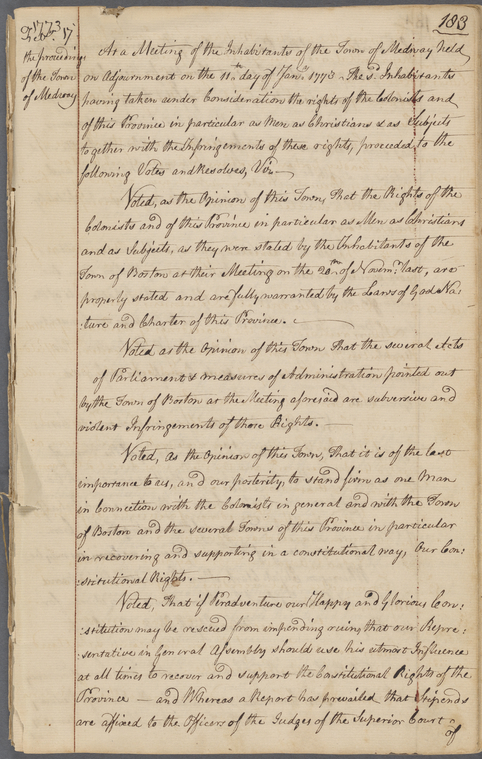 183
1773
Febr. 17
the proceedings
of the Town
of Medway
At a Meeting of the Inhabitants of the Town of Medway held
on Adjournment on the 11th day of Jany 1773. The sd. Inhabitants
having taken under Consideration the rights of the Colonists and
of this Province in particular as Men as Christians & as Subjects
together with the Infringements of these rights, proceeded to the
following Votes and Resolves, Viz.
Voted, as the Opinion of this Town, That the Rights of the
Colonists and of this Province in particular as Men as Christians
and as Subjects, as they were stated by the Inhabitants of the
Town of Boston at their Meeting on the 20th of Novemr. last, are
properly stated and are fully warranted by the Laws of God Na:
:ture and Charter of this Province.
Voted as the Opinion of this Town That the several Acts
of Parliament & measures of Administration pointed out
by the Town of Boston at the Meeting aforesaid are subversive and
violent Infringements of those Rights.
Voted, As the Opinion of this Town, That it is of the last
importance to us, and our posterity, to stand firm as one Man
in Connection with the Colonists in general and with the Town
of Boston and the several Towns of this Province in particular
in recovering and supporting in a constitutional way, Our Con:
:stitutional Rights.
Voted, That if Peradventure our Happy and Glorious Con:
:stitution may be rescued from impending ruin, that our Repre:
:sentative in General Assembly should use his utmost Influence
at all times to recover and support the Constitutional Rights of the
Province — and Whereas a Report has prevailed that Stipends
are affixed to the Officers of the Judges of the Superior Court
of